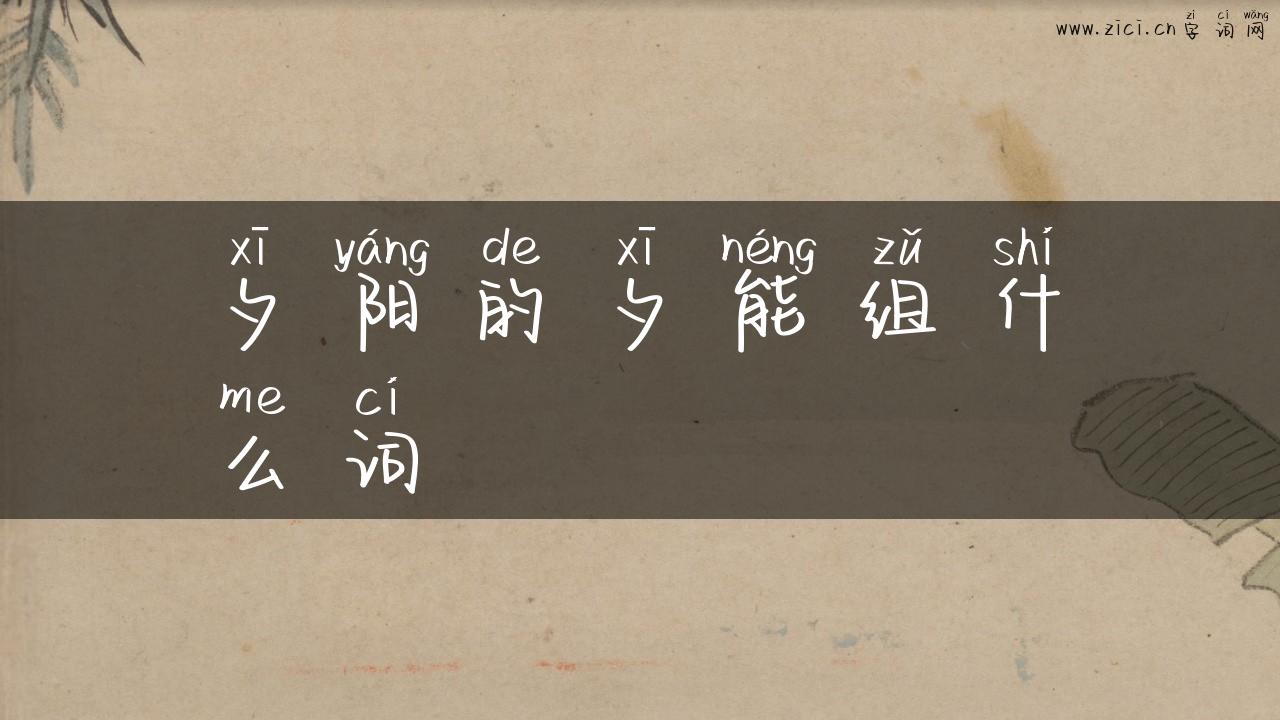 zì cí wǎng
www.zici.cn 字词网
xī yáng de xī néng zǔ shí
夕阳的夕能组什
me cí
么词